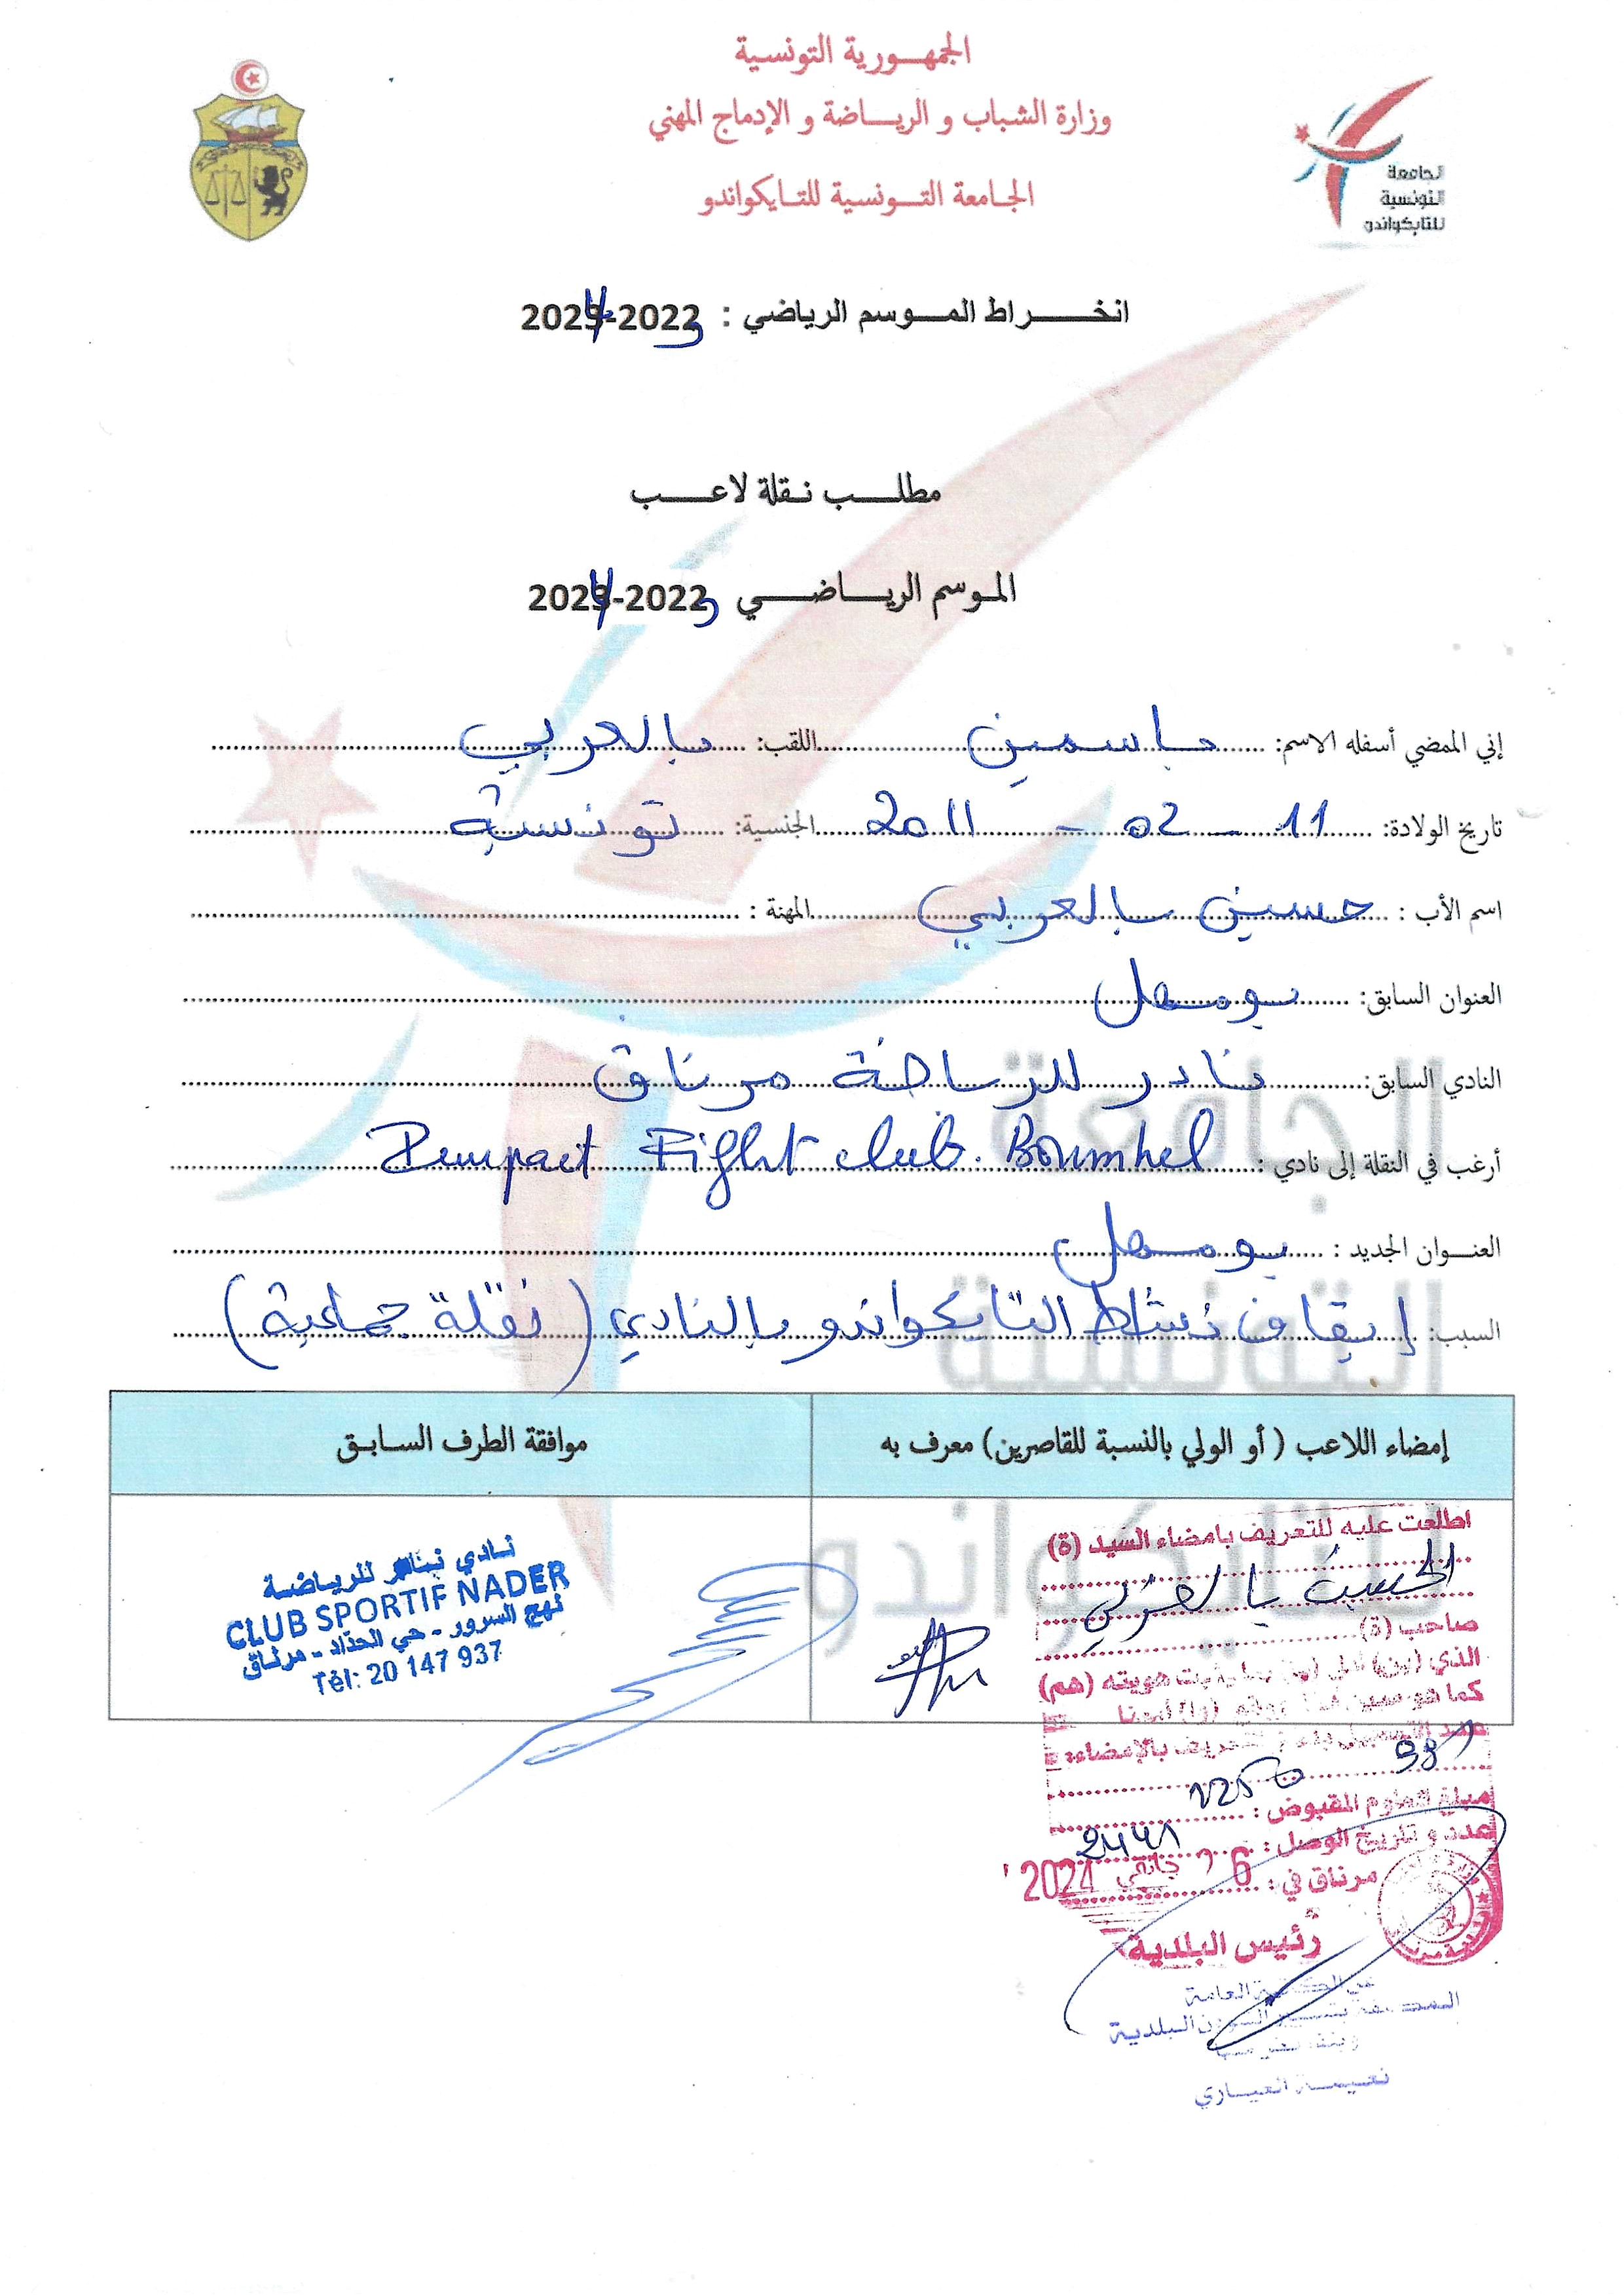 الجمهورية التونسية
وزارة الشباب و الرياضة و الإدماج المهني
الجامعة التونسية للتايكواندو
الجامعة
التونسية
للتايكواندو
انخراط الموسم الرياضي : 2022-2023
مطلب نقلة لاعب
الموسم الرياضي 2022-2023
إني الممضي أسفله الاسم: ياسمين اللقب: بالعربي
تاريخ الولادة: 11 - 02 - 2011 الجنسية: تونسية
اسم الأب : حسين بالعربي المهنة :
العنوان السابق: بومهل
النادي السابق: نادر للرياضة مرناق
أرغب في النقلة إلى نادي : Impact Fight club. Boumhel
العنوان الجديد : بومهل
السبب: إيقاف نشاط التايكواندو بالنادي ( نقلة جماعية )
إمضاء اللاعب ( أو الولي بالنسبة للقاصرين) معرف به
موافقة الطرف السابق
اطلعت عليه للتعريف بامضاء السيد (ة)
بالعربي
صاحب (ة)
الذي هويته (هم)
كما هو مبين
التعريف بالإمضاء:
مبلغ المعلوم المقبوض :
عدد و تاريخ الوصل : 2441
مرناق في : 6 جانفي 2024
رئيس البلدية
العامة
البلدية
نعيمة العياري
نادي نادر للرياضة
CLUB SPORTIF NADER
نهج السرور - حي الحداد - مرناق
Tél: 20 147 937